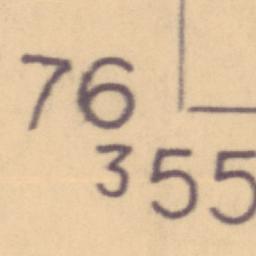 76
355